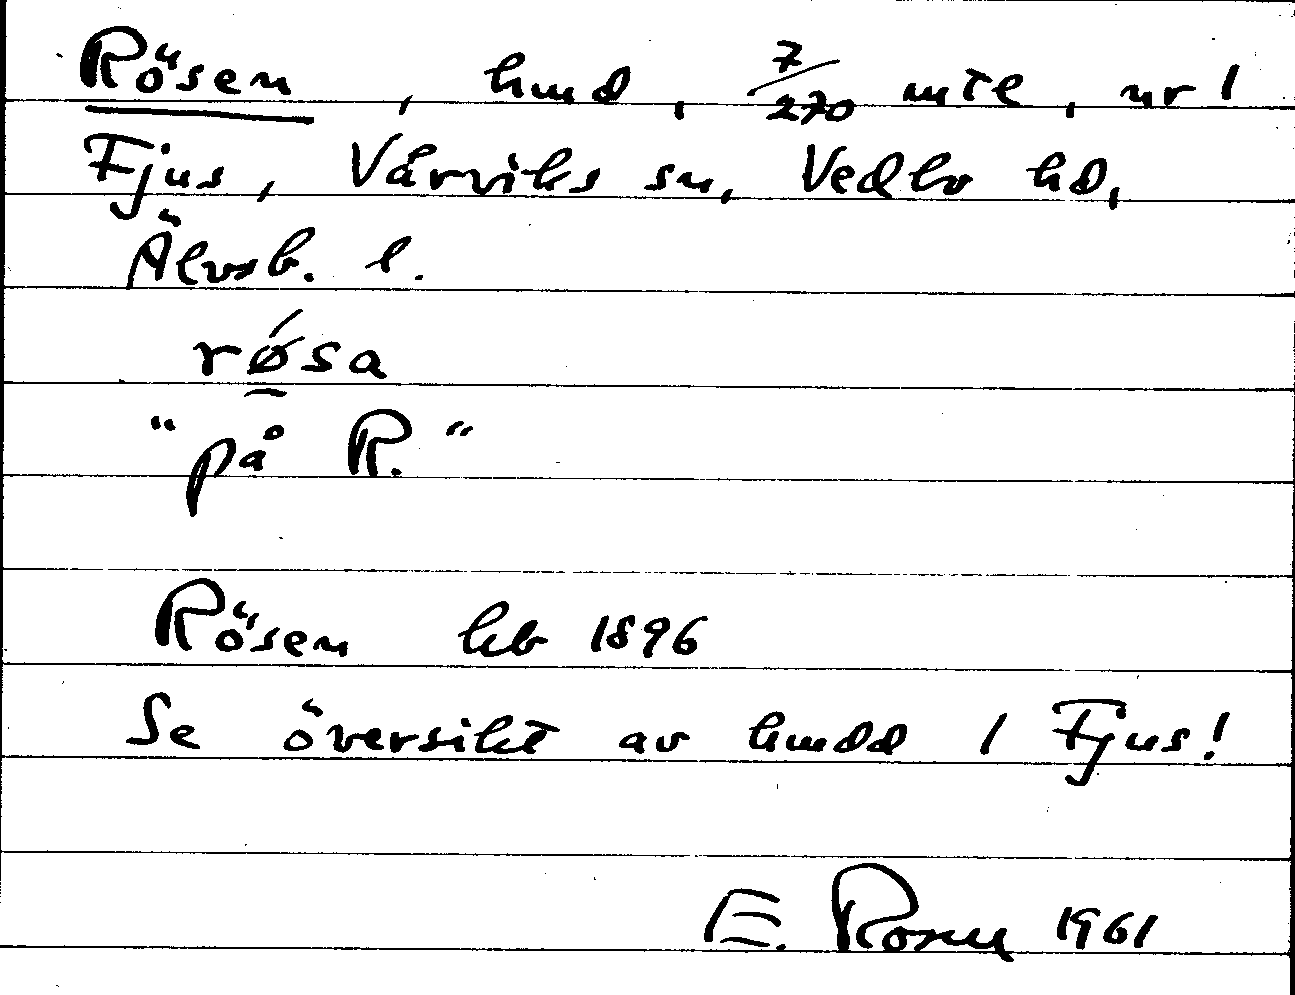 Rösen, hmd, 7/270 mtl, nr 1
Fjus, Vårviks sn, Vedbo hd,
Älvsb. l.
røsa
"på R."
Rösen hb 1896
Se översikt av hmdd 1 Fjus!
E. Rosell 1961